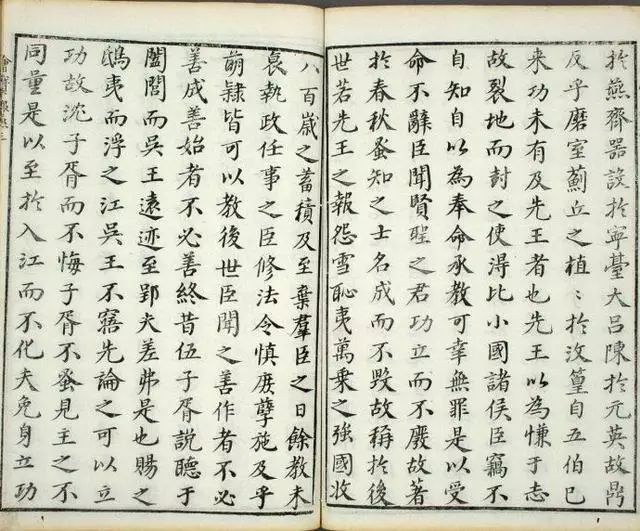 於燕齊器設於寧臺大呂陳於元英故鼎
反乎磨室薊丘之植〻於汶篁自五伯已
来功未有及先王者也先王以為慊于志
故裂地而封之使得比小國諸侯臣竊不
自知自以為奉命承教可幸無罪是以受
命不辭臣聞賢聖之君功立而不廢故著
於春秋蚤知之士名成而不毀故稱於後
世若先王之報怨雪恥夷萬乘之強國收
八百歲之蓄積及至棄羣臣之日餘教未
衰執政任事之臣修法令慎庶孽施及乎
萌隸皆可以教後世臣聞之善作者不必
善成善始者不必善終昔伍子胥說聽于
闔閭而吳王遠迹至郢夫差弗是也賜之
鴟夷而浮之江吳王不寤先論之可以立
功故沈子胥而不悔子胥不蚤見主之不
同量是以至於入江而不化夫免身立功